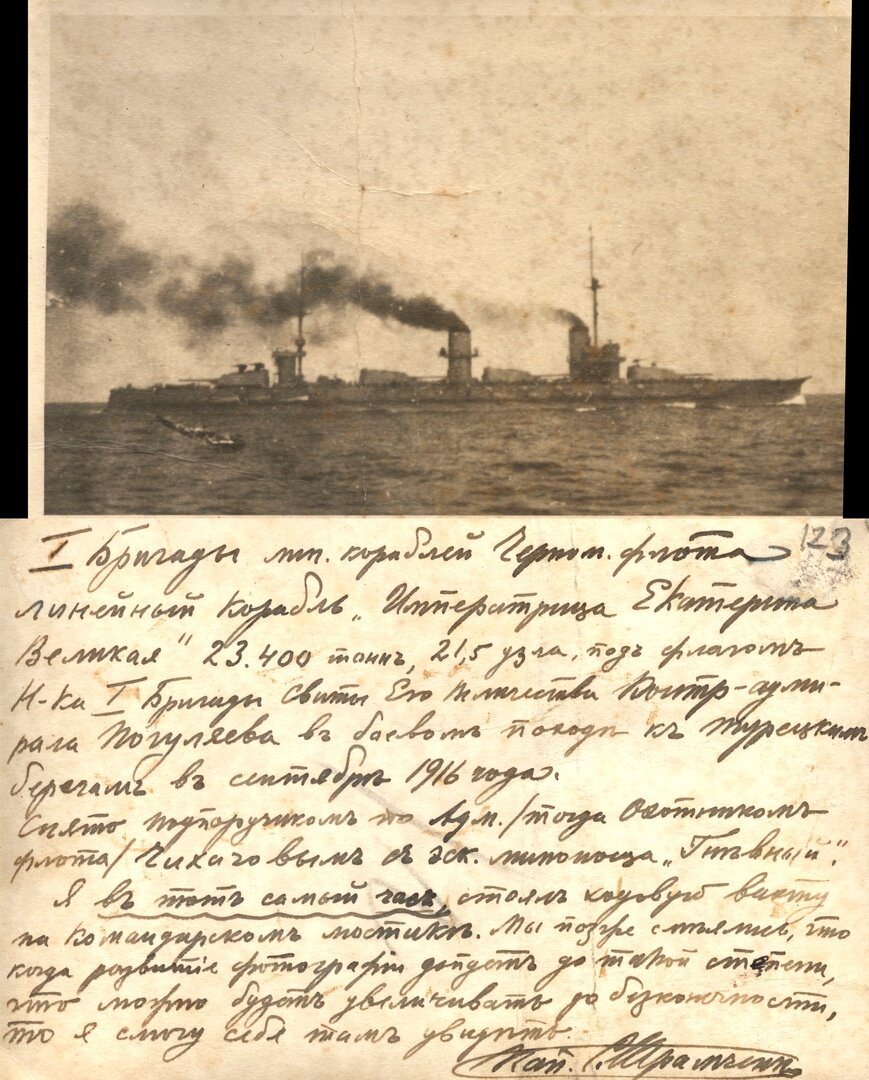 123
I Бригады лин. кораблей Черном. флота
линейный корабль „Императрица Екатерина
Великая" 23.400 тоннъ, 21,5 узла, подъ флагомъ
Н-ка I Бригады Свиты Его Величества Контр-адми-
рала Погуляева въ боевомъ походѣ къ турецкимъ
берегамъ въ сентябрѣ 1916 года.
Снято подпоручикомъ по Адм./тогда Охотникомъ
флота/ Чихачовымъ съ эск. миноносца „Гнѣвный".
Я въ тотъ самый часъ, стоялъ ходовую вахту
на командирскомъ мостикѣ. Мы позже смѣялись, что
когда развитіе фотографіи дойдетъ до такой степени,
что можно будетъ увеличивать до безконечности,
то я смогу себя тамъ увидѣть.
Кап. Шрамченко